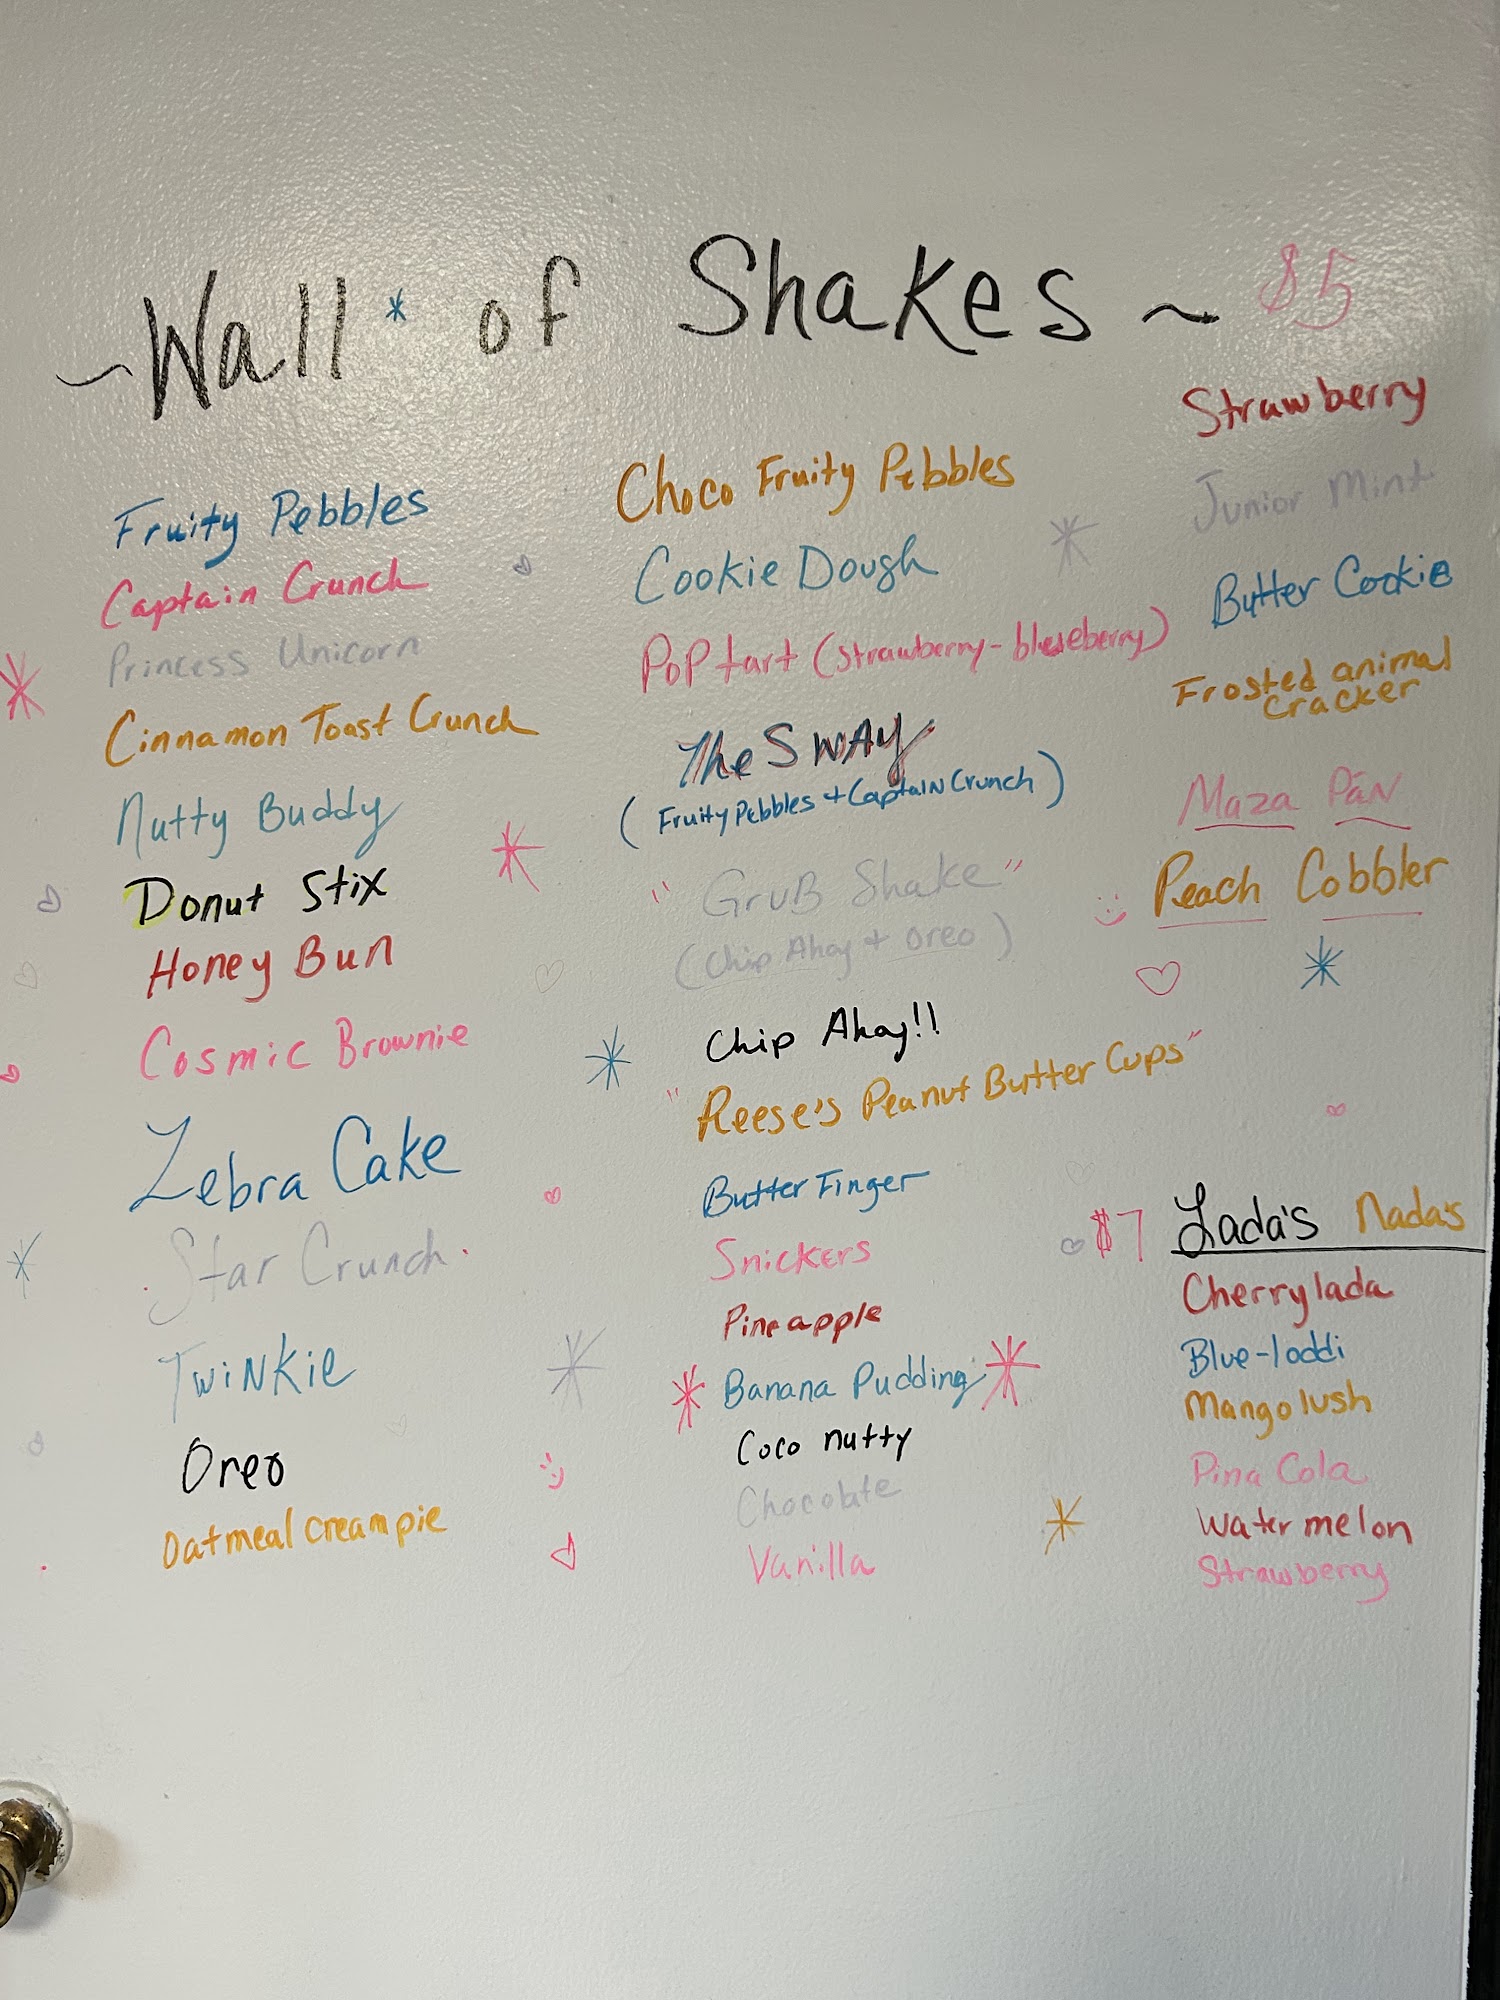 ~Wall of Shakes~ $5
Fruity Pebbles
Captain Crunch
Princess Unicorn
Cinnamon Toast Crunch
Nutty Buddy
Donut Stix
Honey Bun
Cosmic Brownie
Zebra Cake
Star Crunch
Twinkie
Oreo
Oatmeal creampie
Choco Fruity Pebbles
Cookie Dough
Pop tart (strawberry-blueberry)
The SWAy
(Fruity Pebbles + Captain Crunch)
"GruB Shake"
(Chip Ahoy + oreo)
Chip Ahoy!!
"Reese's Peanut Butter Cups"
Butter Finger
Snickers
Pineapple
Banana Pudding
Coco nutty
Chocolate
Vanilla
Strawberry
Junior Mint
Butter Cookie
Frosted animal
cracker
Maza Pān
Peach Cobbler
$7 Lada's Nada's
Cherrylada
Blue-loddi
Mangolush
Pina Cola
Watermelon
Strawberry